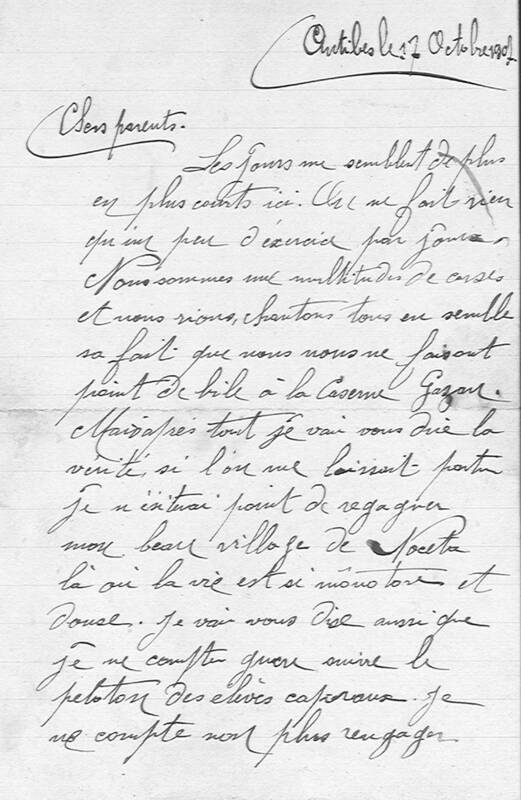 Antibes le 17 Octobre 190
Chers parents.
Les jours me semblent de plus
en plus courts ici. On ne fait rien
qu'un peu d'exercice par jour.
Nous sommes une multitudes de corses
et nous rions, chantons tous en semble
sa fait que nous nous ne faisont
point de bile à la Caserne Gazan.
Mais après tout je vais vous dire la
vérité, si l'on me laissait partir
je n'
point de regagner
mon beau village de Noceta
là où la vie est si mônotone et
douse. Je vais vous dire aussi que
je ne compter guere suivre le
peloton des élèves caporaux. Je
ne compte non plus rengager